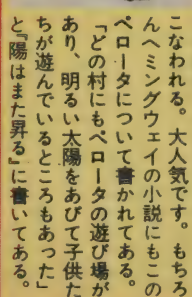 こなわれる。大人気です。もちろ
んヘミングウェイの小説にもこの
ペロータについて書かれてある。
「どの村にもペロータの遊び場が
あり、明るい太陽をあびて子供た
ちが遊んでいるところもあった」
と『陽はまた昇る』に書いてある。